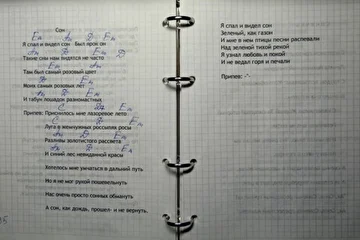 Сон
Em Am D Em
Я спал и видел сон Был прок он
Am H Em D
Такие сны нам видятся не часто
Em Am
Там был самый розовый цвет
Am H
Моих самых розовых лет
Am H Em
И табун лошадок разномастных
C D Em
Припев: Приснилось мне лазоревое лето
C Em
Луга в жемчужных россыпях росы
Am D
Разливы золотистого рассвета
Am H Em
И синий лес невиданной красы
Хотелось мне умчаться в дальний путь
Но я не мог рукой пошевельнуть
Нас очень просто сонных обмануть
А сон, как дождь, прошел- и не вернуть.
Я спал и видел сон
Зеленый, как газон
И мне в нем птицы песни распевали
Над зеленой тихой рекой
Я узнал любовь и покой
И не ведал горя и печали
Припев: -"-